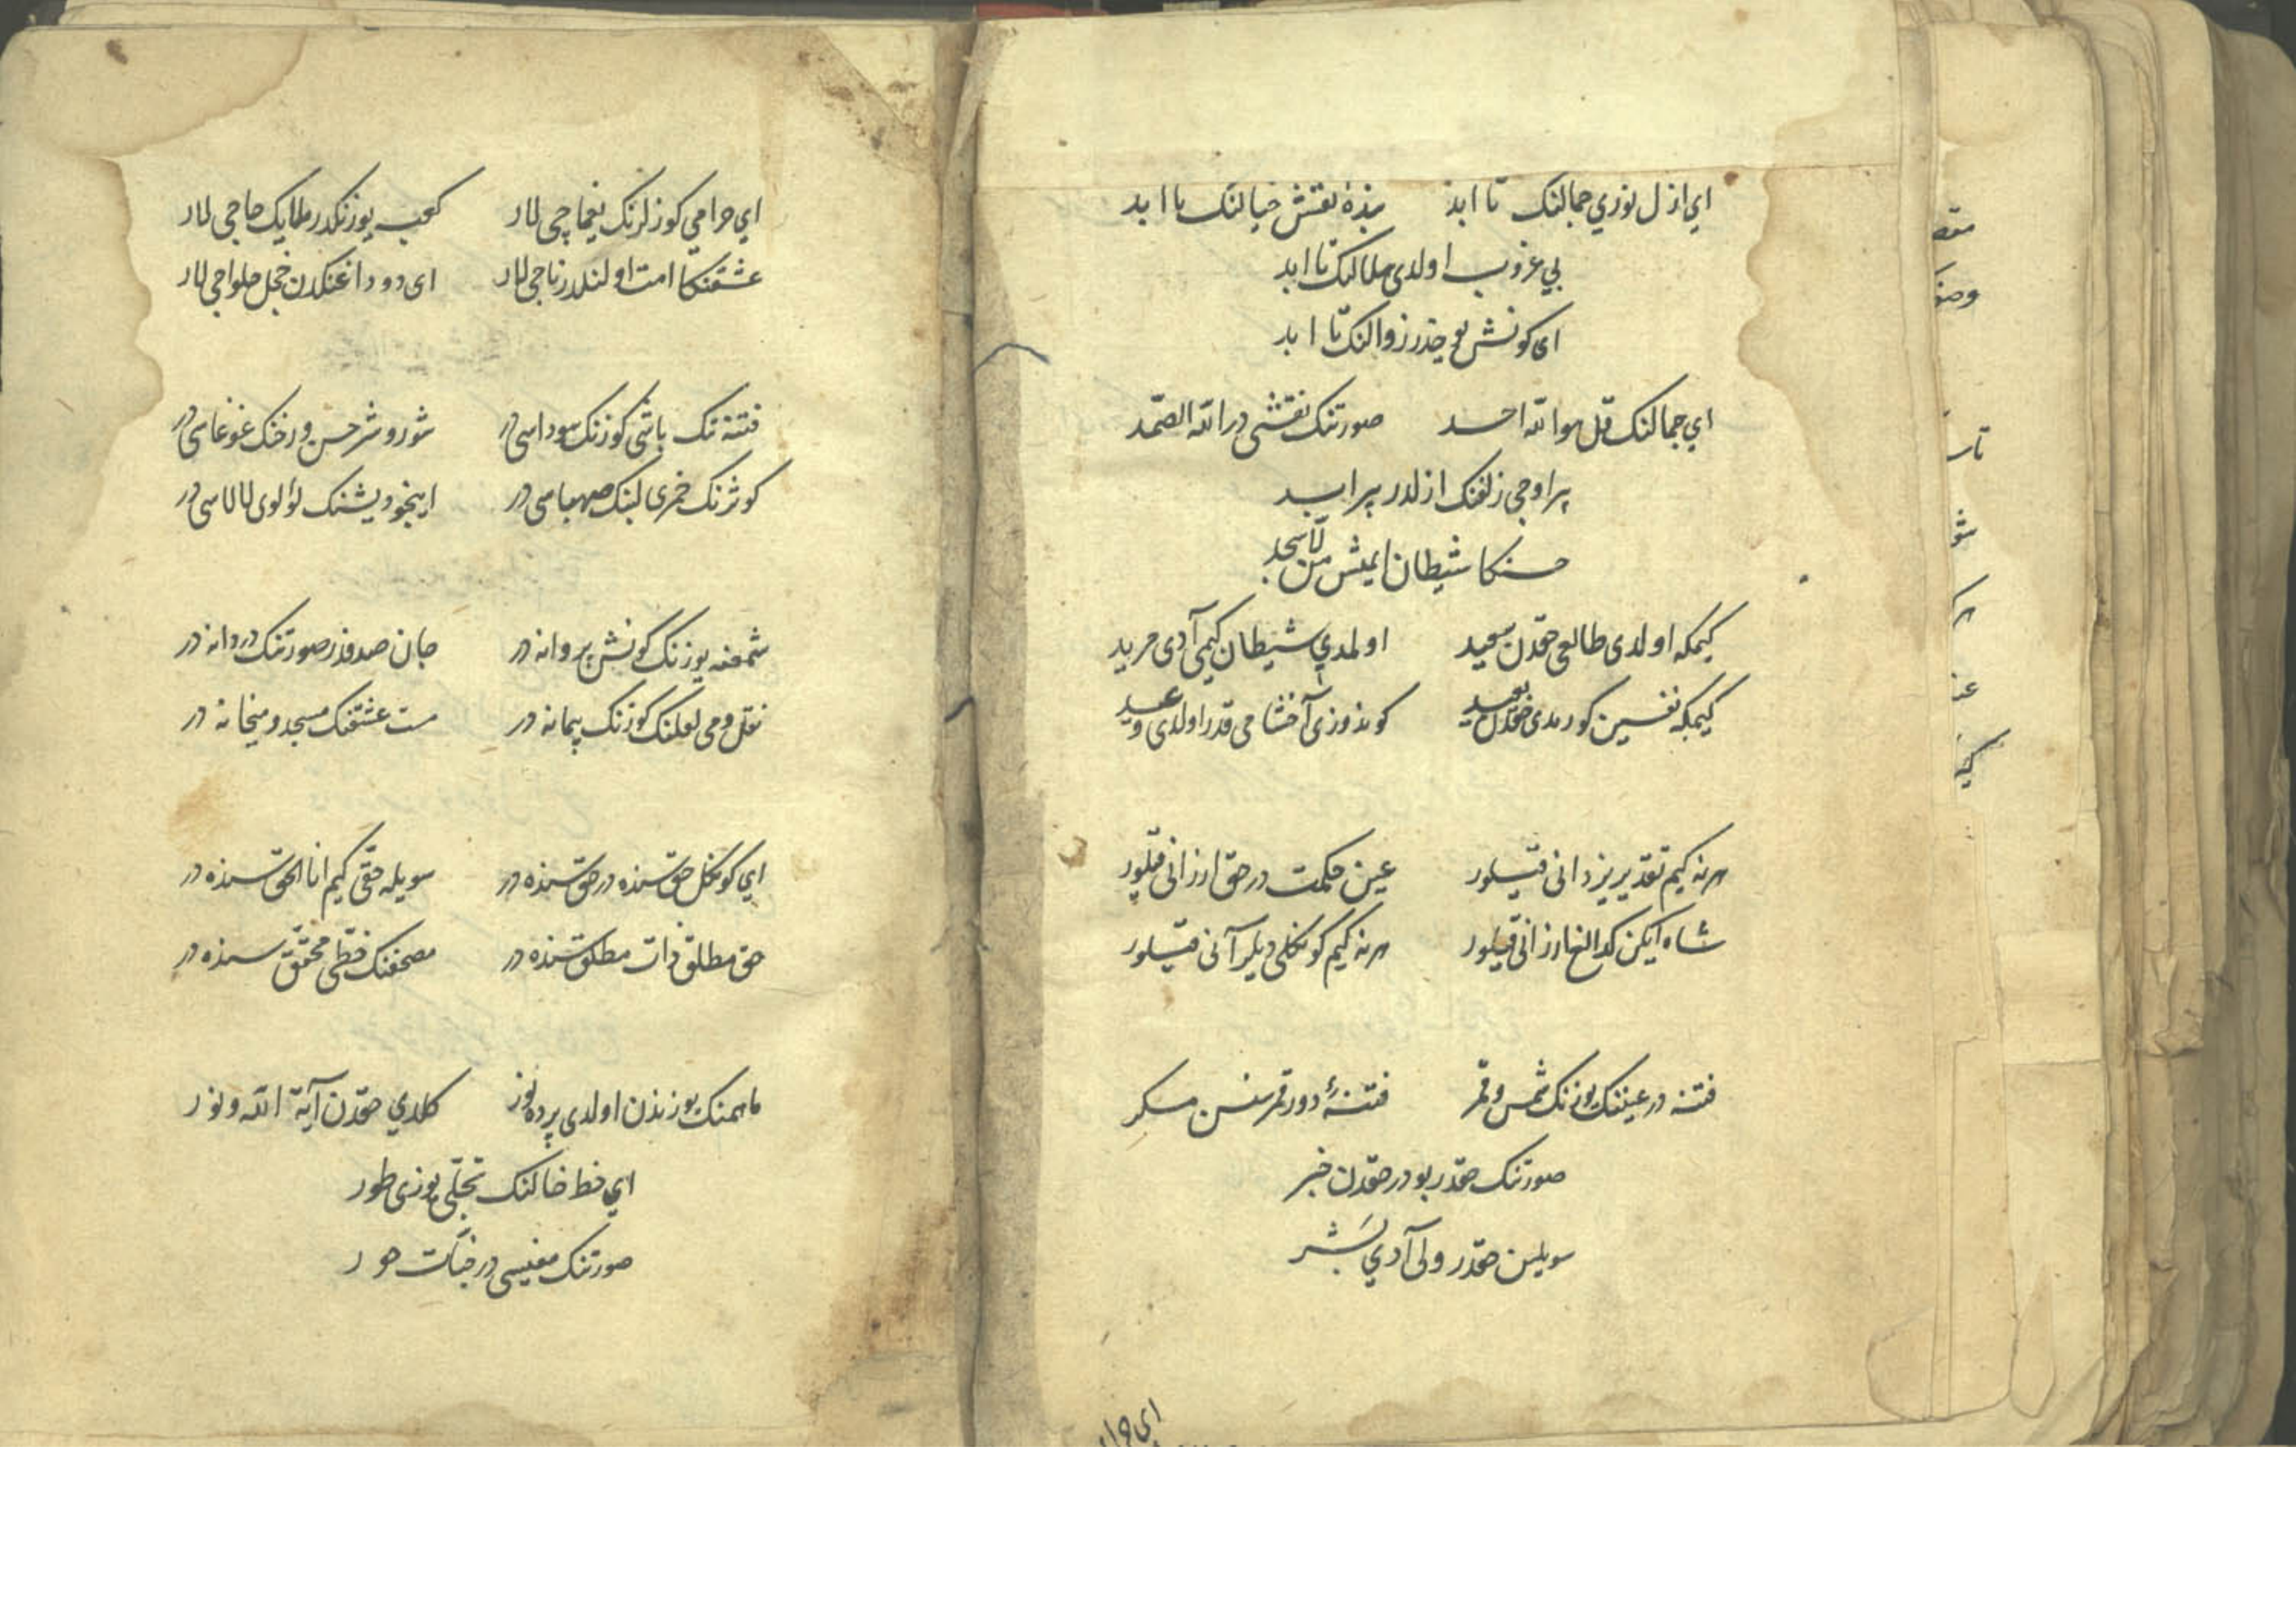 اي ازل نوري جمالنك تا ابد بنده نقش خيالنك تا ابد
بي غروب اولدى هلالنك تا ابد
اى كونش يوخدر زوالنك تا ابد
اي جمالنك قل هو الله احد صورتنك نقشى در الله الصمد
بر اوجى زلفنك ازلدر بر ابد
حسنكا شيطان ايمش من لا سجد
كيمكه اولدى طالعى حقدن سعيد اولمدي شيطان كيمى آدى مريد
كيمكه نفسين كورمدى حقدن بعيد كوندوزى آخشامى قدر اولدى و عيد
هر نه كيم تقدير يزدانى قيلور عين حكمت در حق ارزانى قيلور
شاه ايكن كدا ارزانى قيلور هر نه كيم كونكلى ديلر آنى قيلور
فتنه در عينك يوزنك شمس و قمر فتنهٔ دور قمرسن سن مكر
صورتنك حقدر بودر حقدن خبر
سويلين حقدر ولى آدي بشر
اي حرامي كوزلرنك يغماچى لار كعبه يوزنكدر ملايك حاجى لار
عشقنكا امت اولنلدر ناجى لار اى دوداغنكدن خجل حلواجى لار
فتنه نك باشى كوزنك سوداسى در شور و شر حسن و رخنك غوغاسى در
كوثرنك خمرى لبنك صهباسى در اينجو ديشنك لؤلوى لالاسى در
شمعنه يوزنك كونش پروانه در جان صدفدر صورتنك دردانه در
نقل و مى لعلنك كوزنك پيمانه در مست عشقنك مسجد و ميخانه در
اي كونكل حق سنده در حق سنده در سويله حقى كيم انا الحق سنده در
حق مطلق ذات مطلق سنده در مصحفنك خطى محقق سنده در
ماهمنك يوزندن اولدى پرده دور كلدي حقدن آية الله و نور
اي خط خالنك تجلى يوزى طور
صورتنك معنيسى در جنات حور